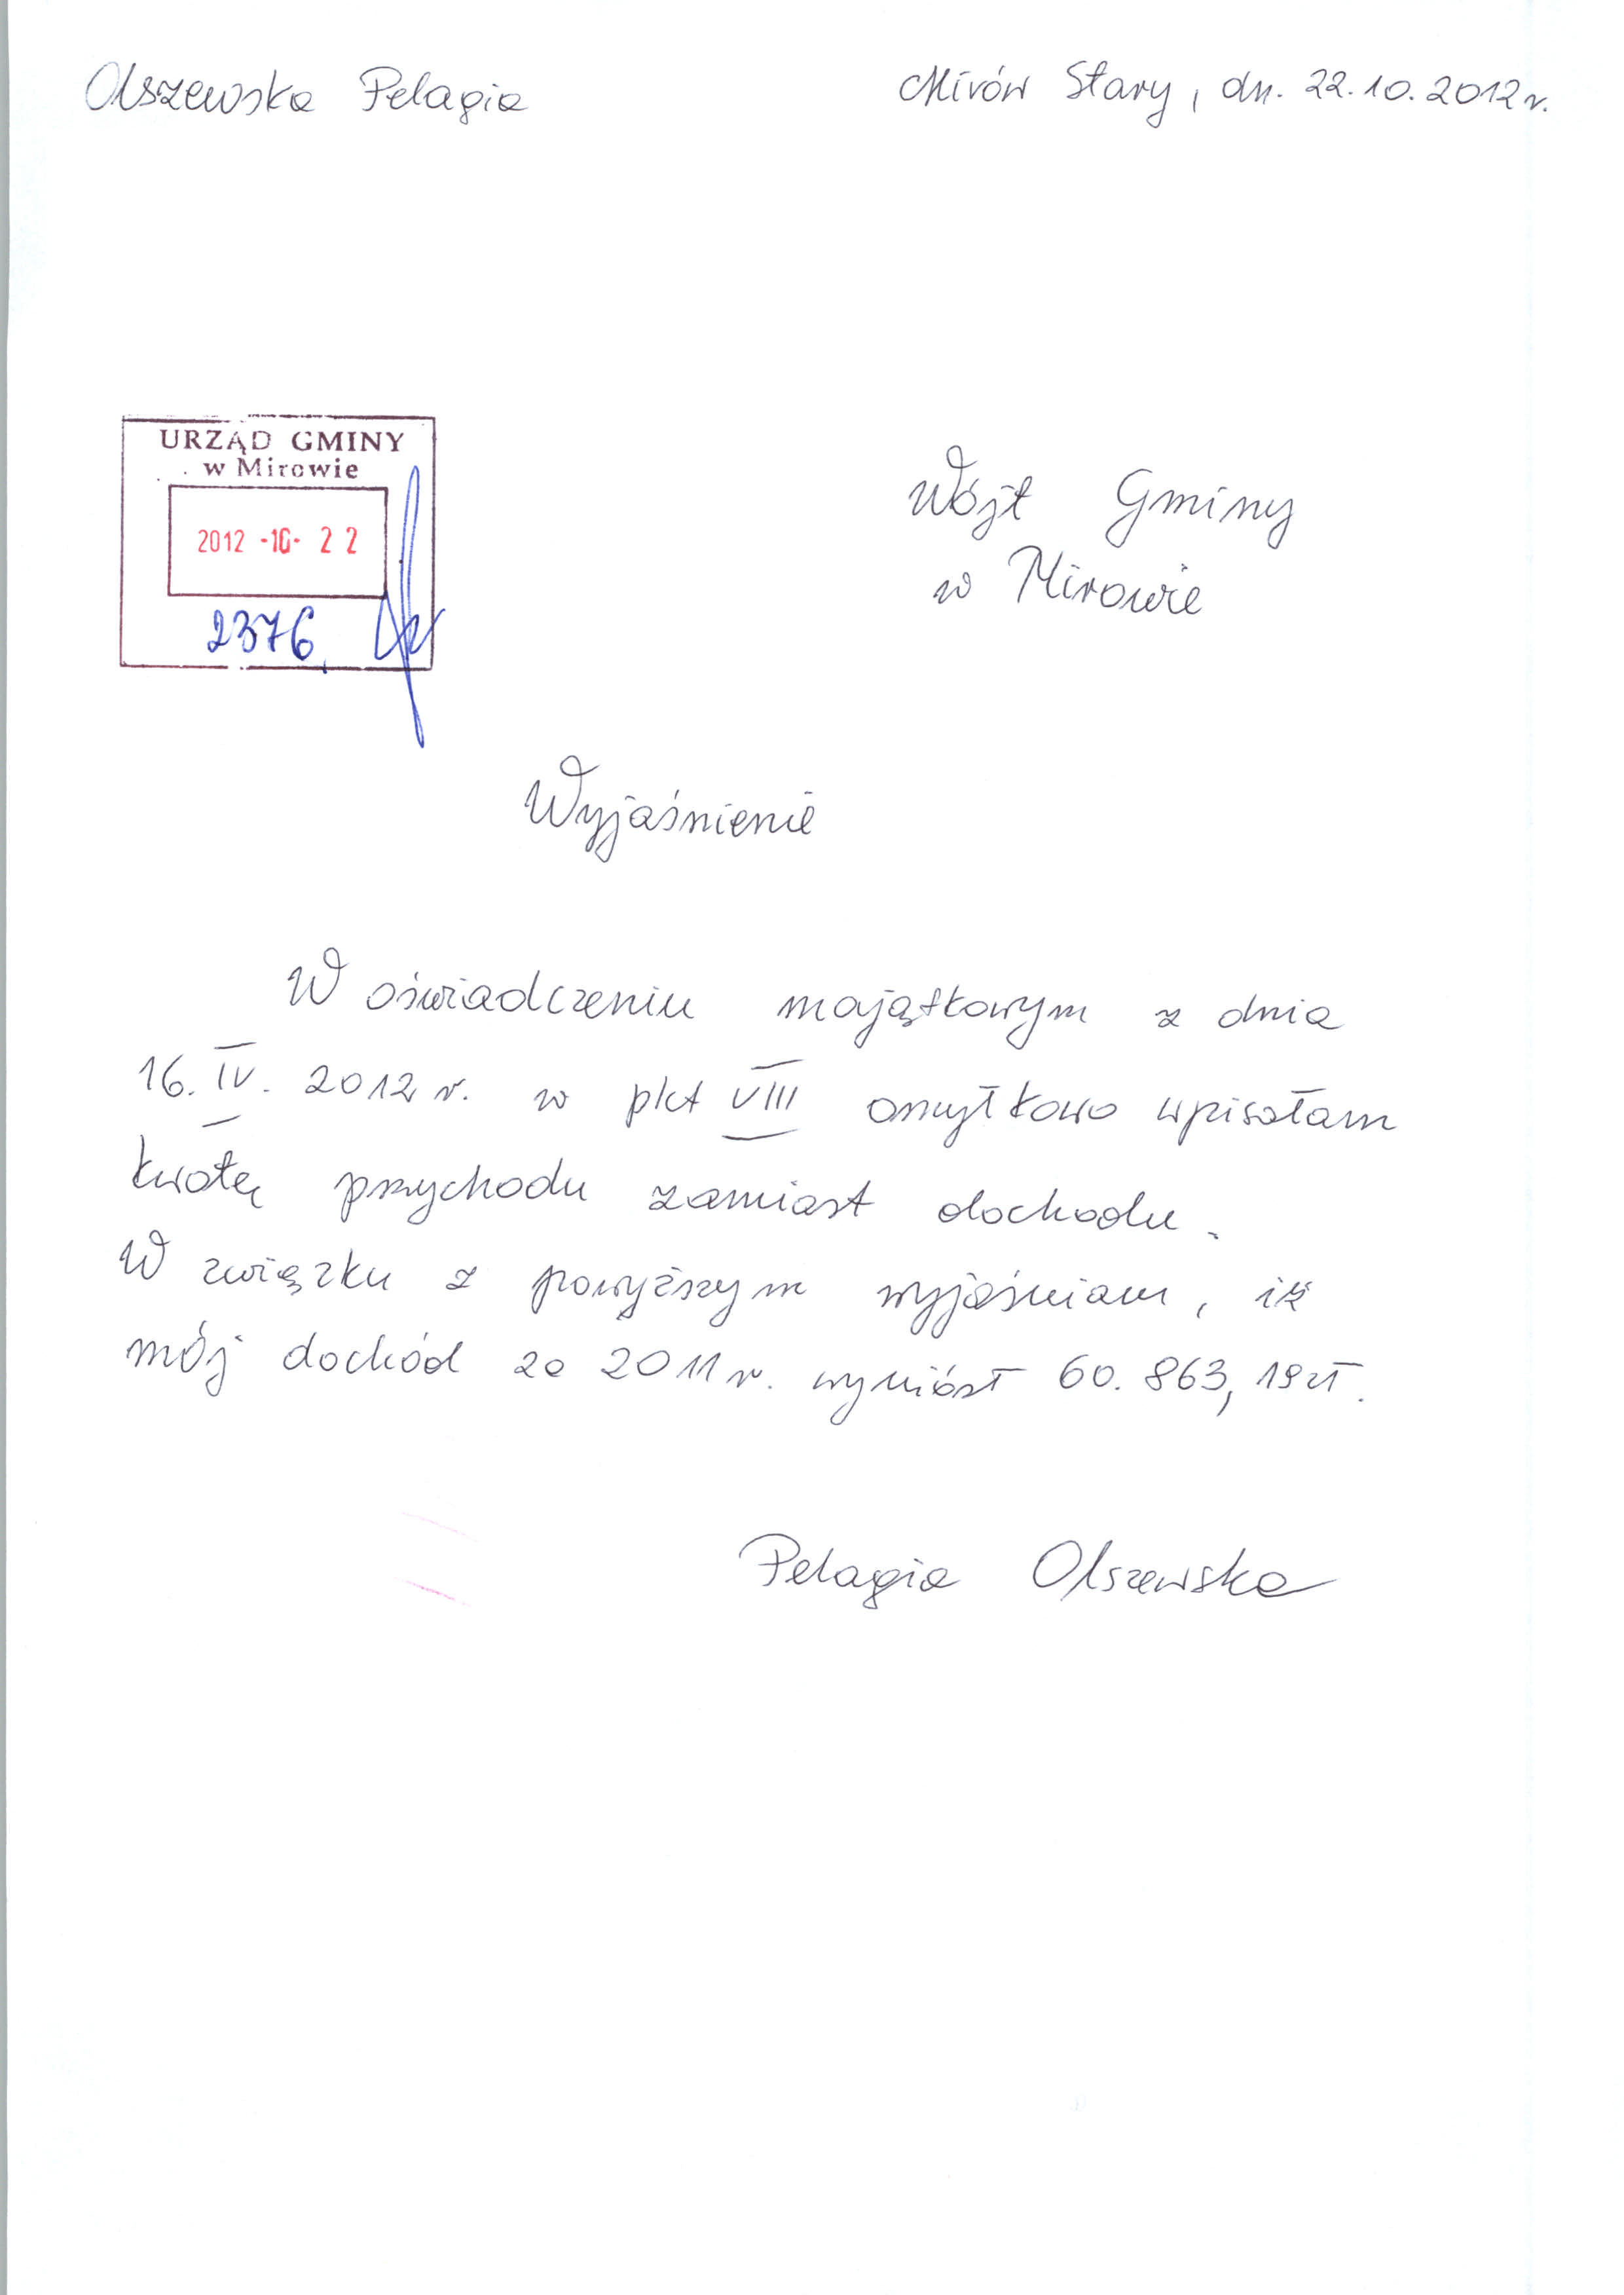 Olszewska Pelagia
Mirów Stary, dn. 22.10.2012 r.
URZĄD GMINY
w Mirowie
2012 -10- 22
2376
Wójt Gminy
w Mirowie
Wyjaśnienie
W oświadczeniu majątkowym z dnia
16. IV. 2012 r. w pkt VIII omyłkowo wpisałam
kwotę przychodu zamiast dochodu.
W związku z powyższym wyjaśniam, iż
mój dochód za 2011 r. wyniósł 60.863,19 zł.
Pelagia Olszewska